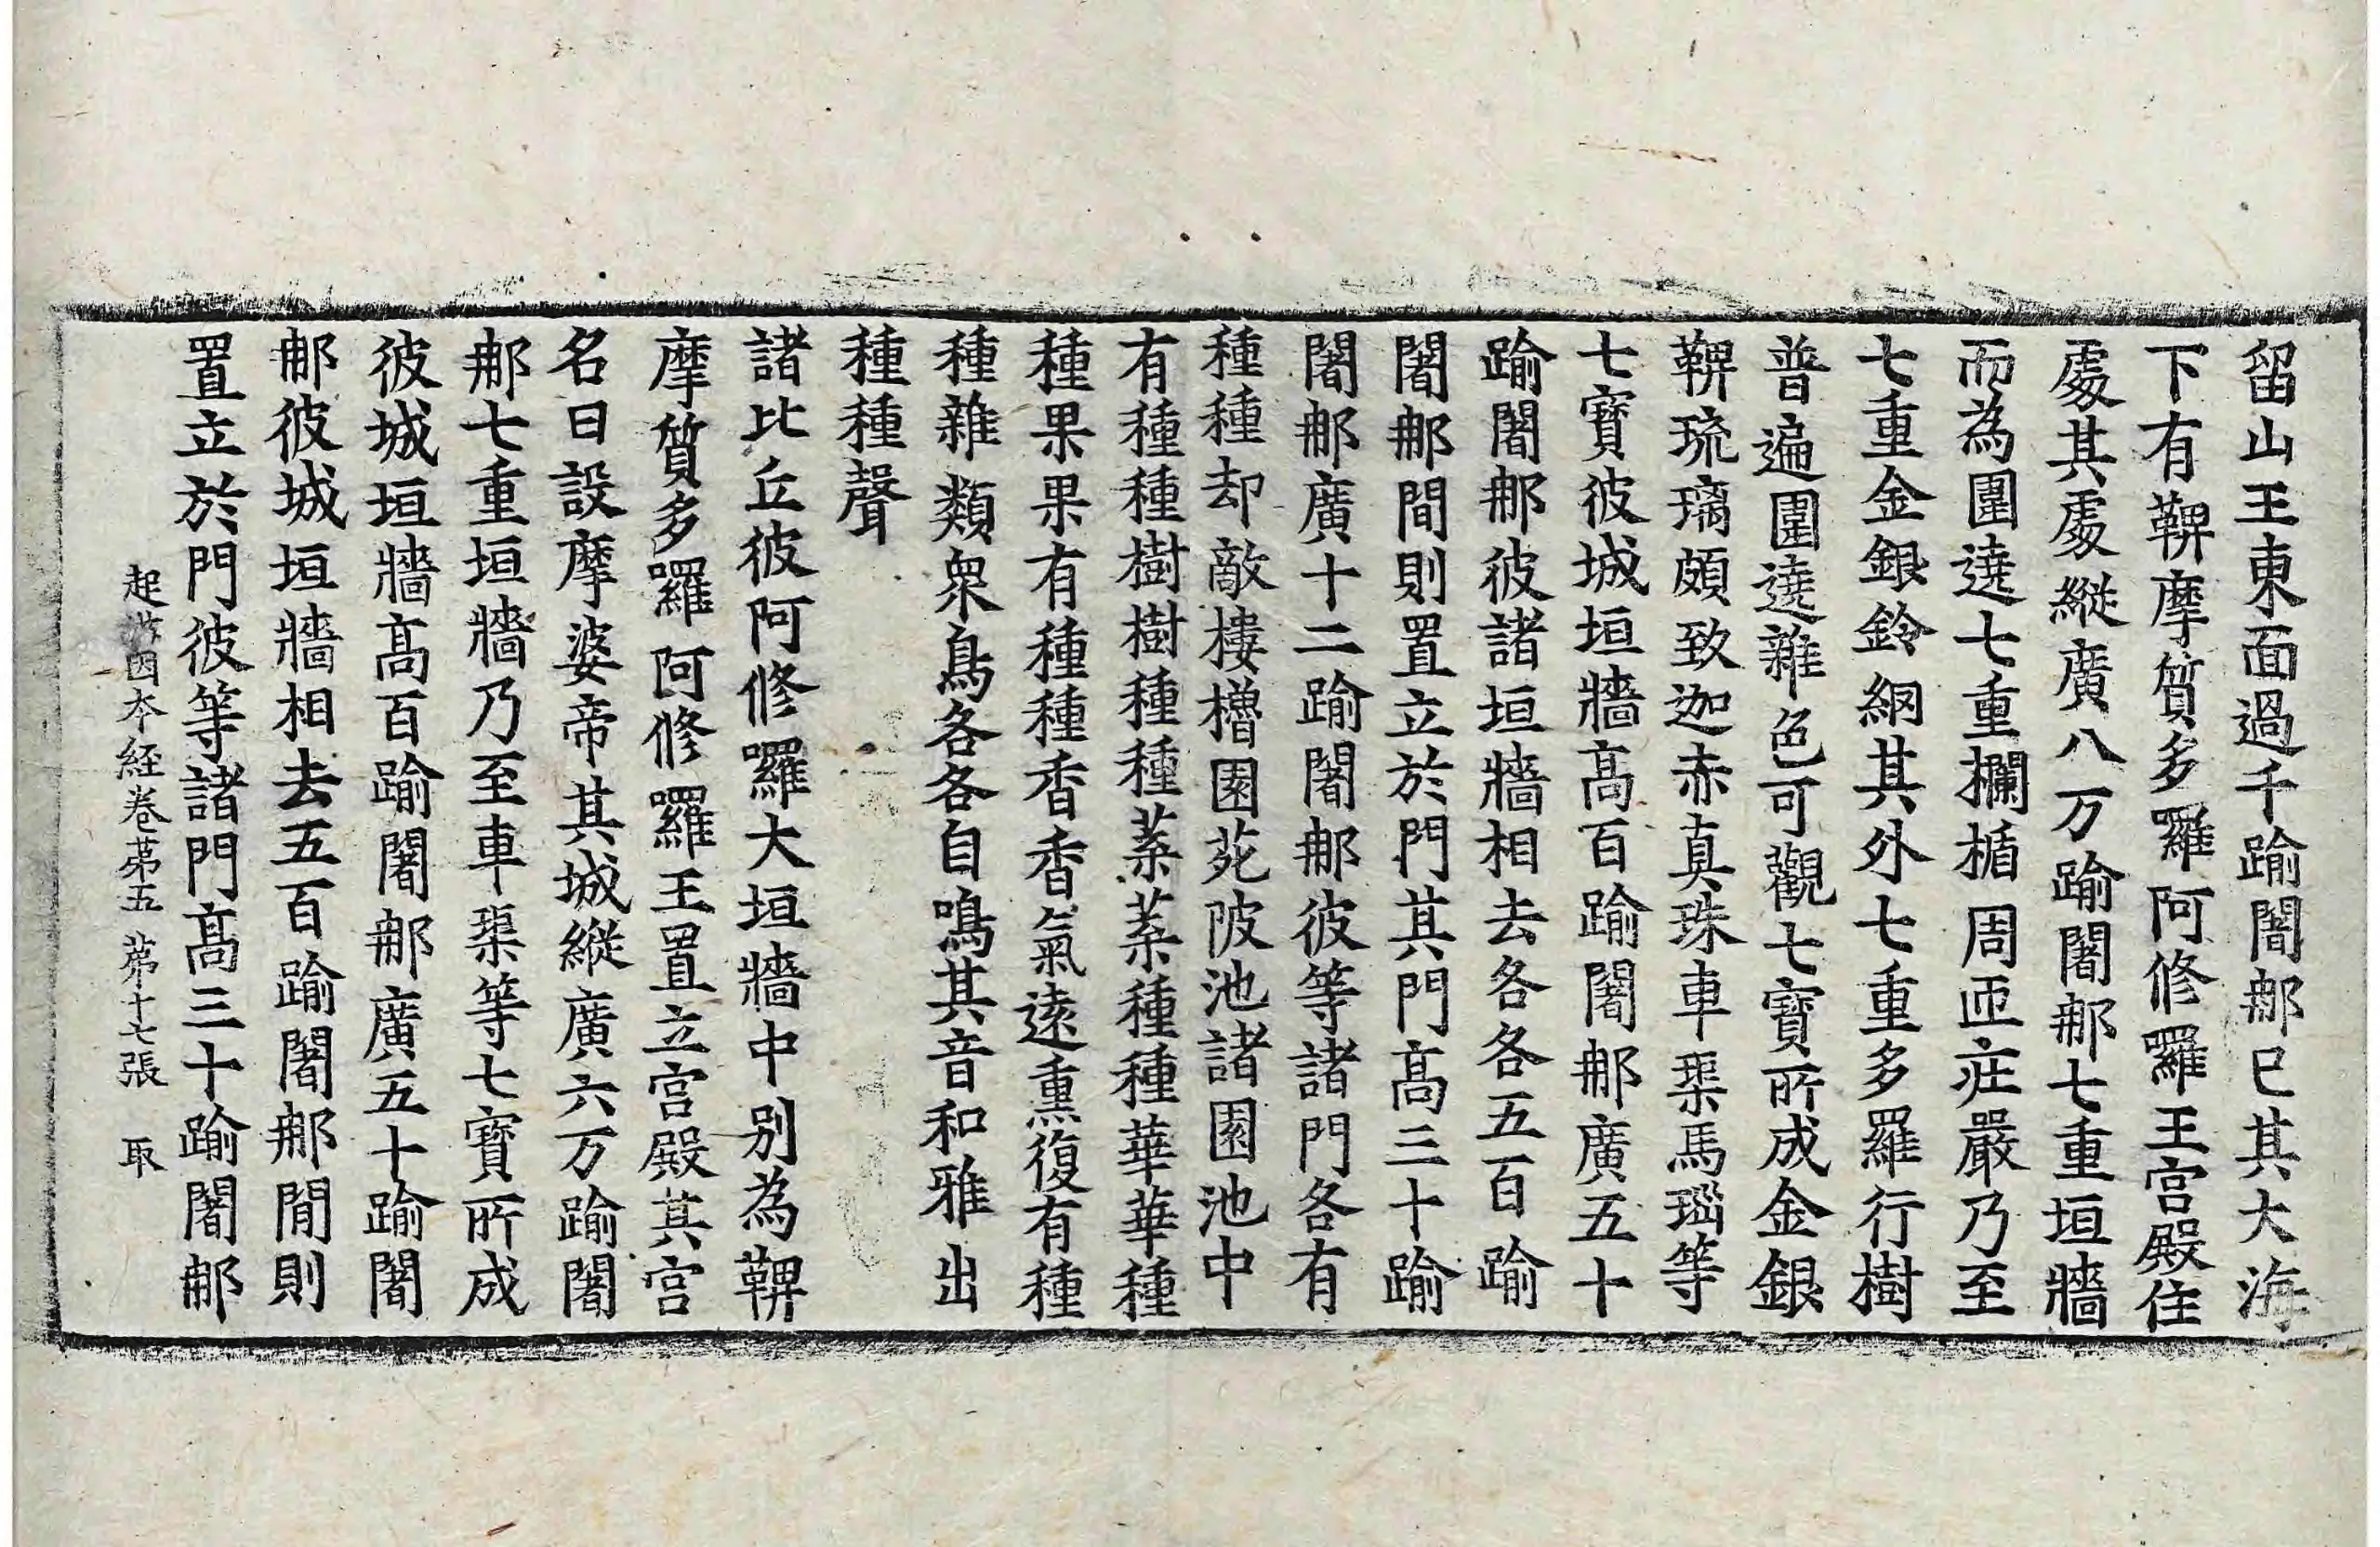 留山王東面過千踰闍那已其大海
下有鞞摩質多囉阿修囉王宮殿住
處其處縱廣八万踰闍那七重垣牆
而為圍遶七重欄楯周匝莊嚴乃至
七重金銀鈴網其外七重多羅行樹
普遍圍遶雜色可觀七寶所成金銀
鞞琉璃頗致迦赤真珠車璖馬瑙等
七寶彼城垣牆高百踰闍那廣五十
踰闍那彼諸垣牆相去各各五百踰
闍那間則置立於門其門高三十踰
闍那廣十二踰闍那彼等諸門各有
種種却敵樓櫓園苑陂池諸園池中
有種種樹樹種種葉葉種種華華種
種果果有種種香香氣遠熏復有種
種雜類衆鳥各各自鳴其音和雅出
種種聲
諸比丘彼阿修囉大垣牆中別為鞞
摩質多囉阿修囉王置立宮殿其宮
名曰設摩婆帝其城縱廣六万踰闍
那七重垣牆乃至車璖等七寶所成
彼城垣牆高百踰闍那廣五十踰闍
那彼城垣牆相去五百踰闍那間則
置立於門彼等諸門高三十踰闍那
起世因本經卷第五 第十七張 取